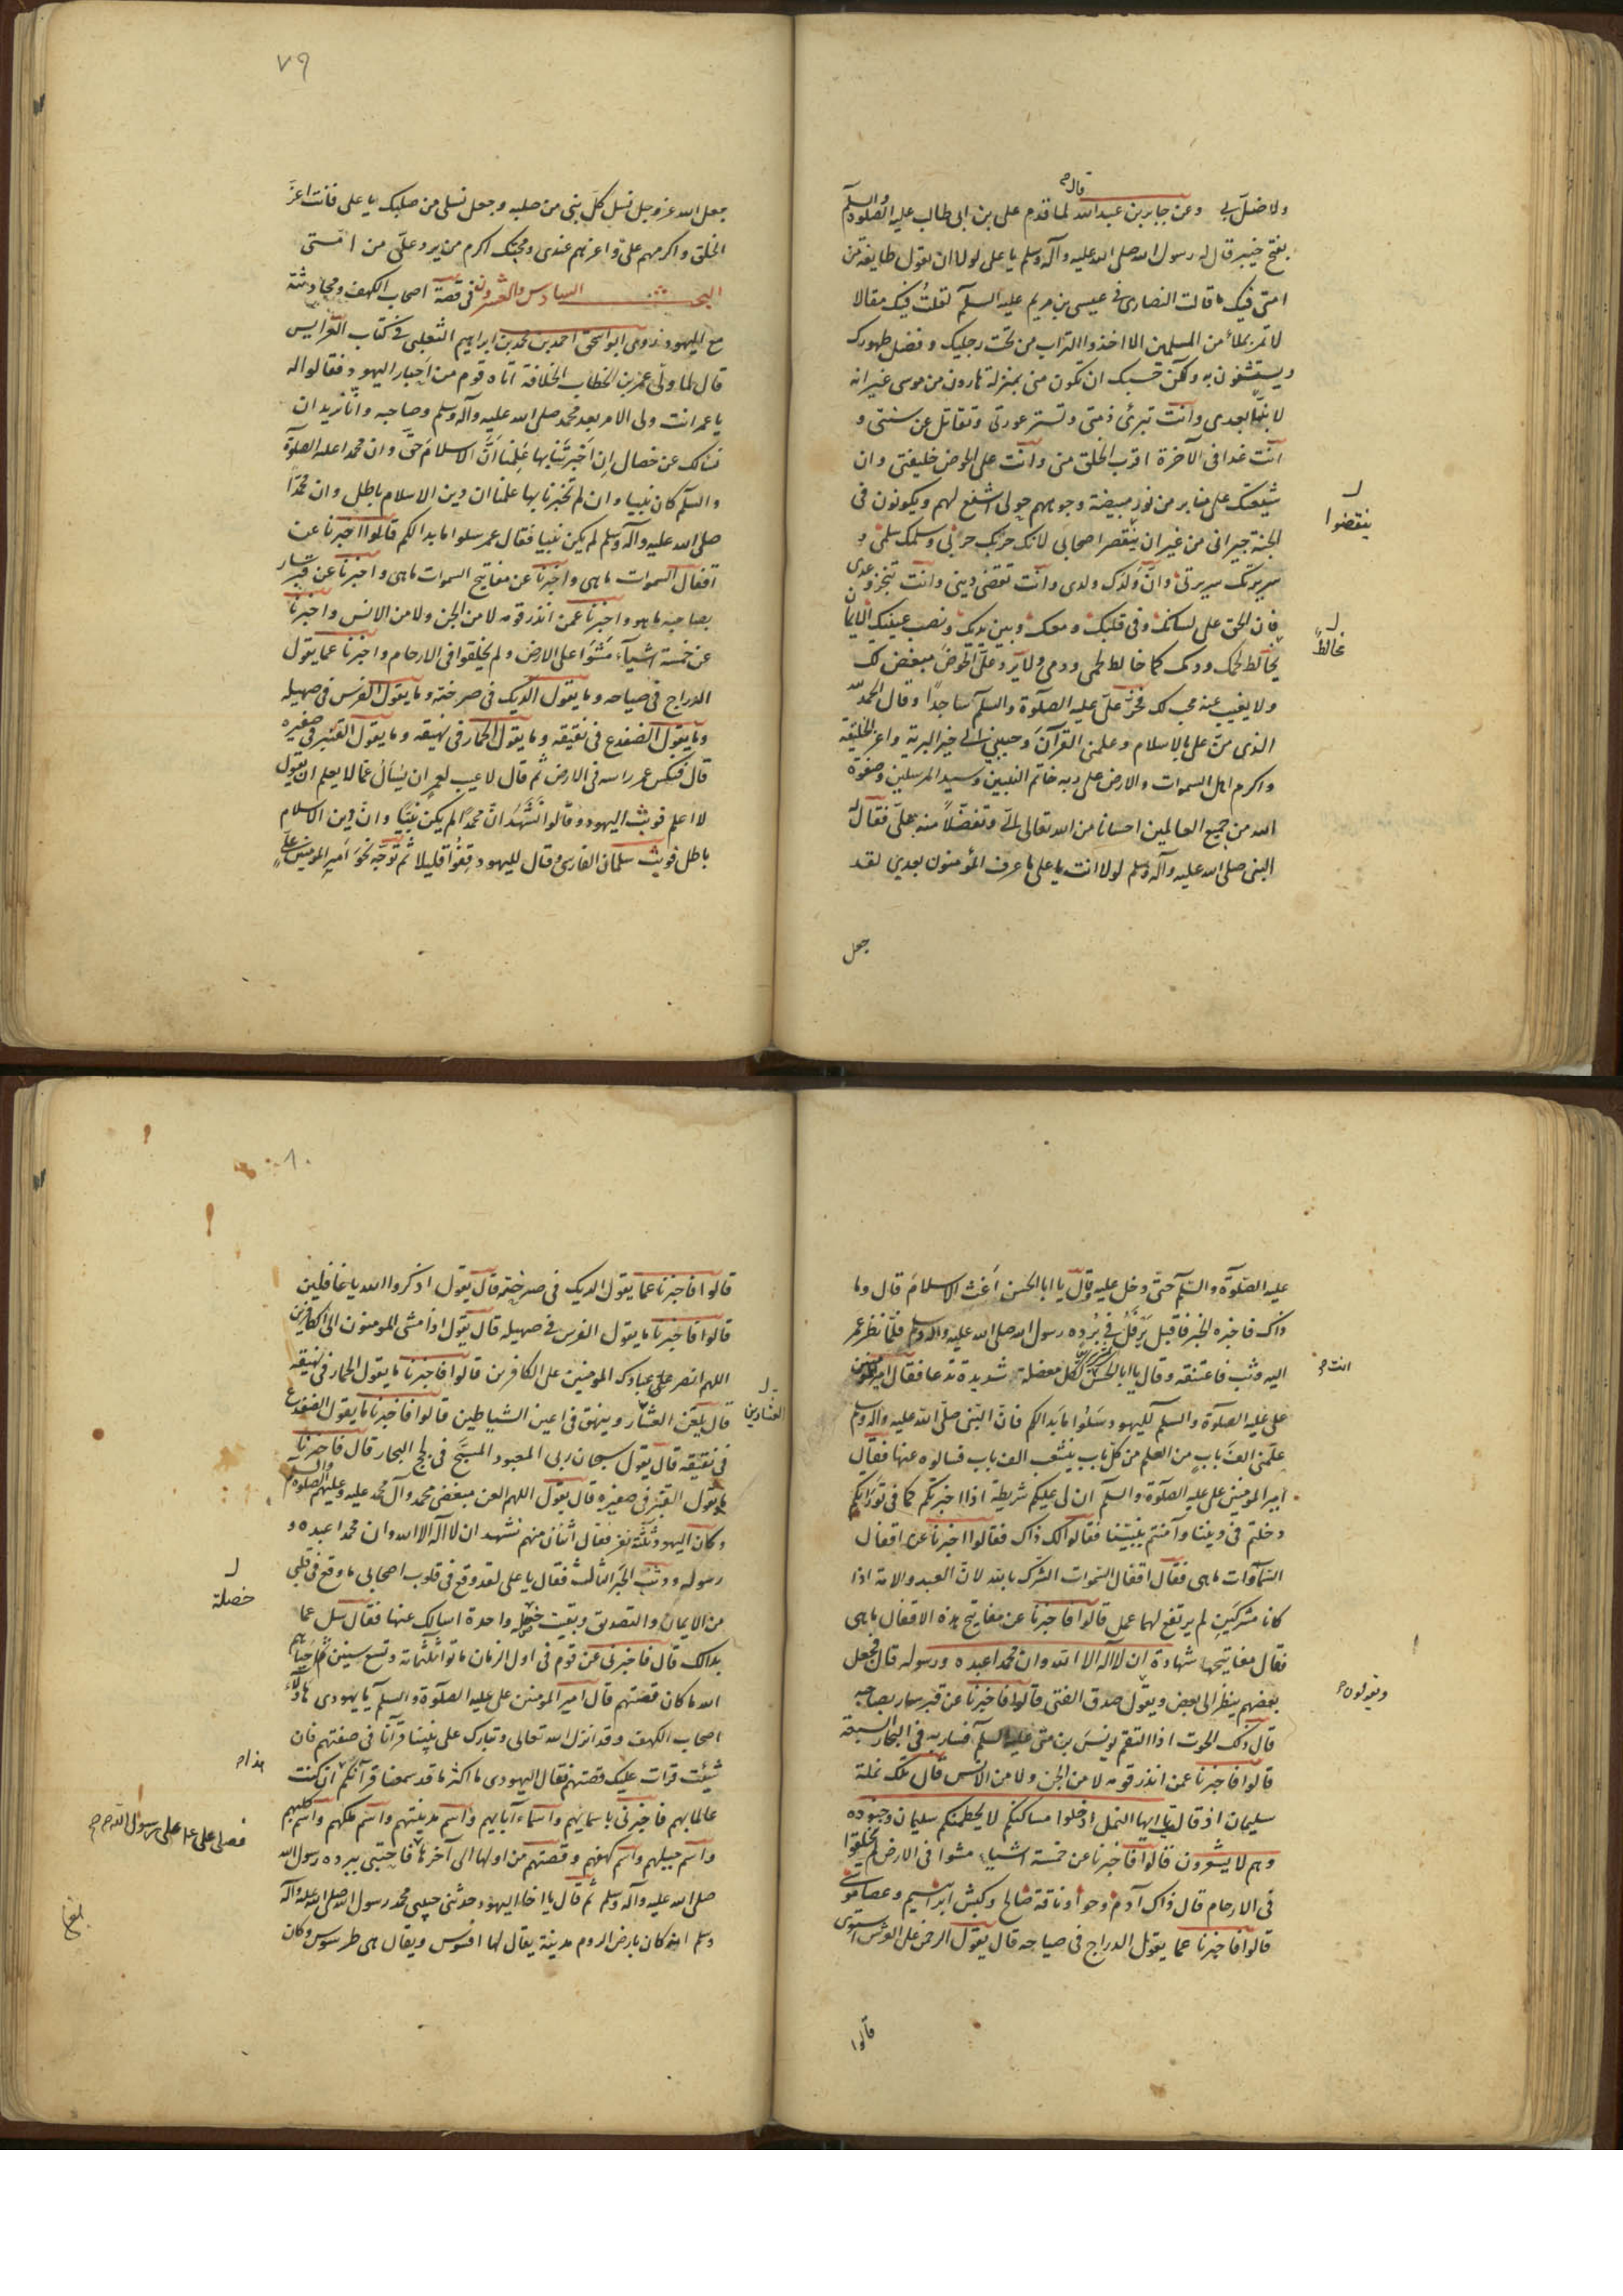 قال
ولا ضل بي وعن جابر بن عبد الله لما قدم علي بن ابي طالب عليه الصلوة والسلم
بفتح خيبر قال له رسول الله صلى الله عليه وآله وسلم يا علي لولا ان تقول طايفة من
امتي فيك ما قالت النصارى في عيسى بن مريم عليه السلم لقلت فيك مقالا
لا تمر بملأ من المسلمين الا اخذوا التراب من تحت رجليك وفضل طهورك
ويستشفون به ولكن حسبك ان تكون مني بمنزلة هارون من موسى غير انه
لا نبي بعدي وانت تبرئ ذمتي وتستر عورتي وتقاتل عن سنتي و
انت غدا في الآخرة اقرب الخلق مني وانت على الحوض خليفتي وان
شيعتك على منابر من نور مبيضة وجوههم حولي اشفع لهم ويكونون في
ينقضوا
الجنة جيراني من غير ان ينقصر اصحابي لانك حربك حربي وسلمك سلمي و
سريرتك سريرتي وان ولدك ولدي وانت تقضي ديني وانت تنجز وعدي
فان الحق على لسانك وفي قلبك ومعك وبين يديك ونصب عينيك الايمان
مخالط
يخالط لحمك ودمك كما خالط لحمي ودمي ولا يرد علي الحوض مبغض لك
ولا يغيب عنه محب لك فخر علي عليه الصلوة والسلم ساجدا وقال الحمد لله
الذي من علي بالاسلام وعلمني القرآن وحببني الى خير البرية واعز الخليقة
واكرم اهل السموات والارض على ربه خاتم النبيين وسيد المرسلين وصفوة
الله من جميع العالمين احسانا من الله تعالى الي وتفضلا منه علي فقال له
النبي صلى الله عليه وآله وسلم لولا انت يا علي ما عرف المؤمنون بعدي لقد
جعل
٧٩
جعل الله عز وجل نسل كل نبي من صلبه وجعل نسلي من صلبك يا علي فانت اعز
الخلق واكرمهم علي واعزهم عندي ومحبك اكرم من يرد علي من امتي
البحث السادس والعشرون في قصة اصحاب الكهف ومحادثته
مع اليهود روى ابو اسحق احمد بن محمد بن ابراهيم الثعلبي في كتاب العرايس
قال لما ولي عمر بن الخطاب الخلافة اتاه قوم من احبار اليهود فقالوا له
يا عمر انت ولي الامر بعد محمد صلى الله عليه وآله وسلم وصاحبه وانا نريد ان
نسالك عن خصال ان اخبرتنا بها علمنا ان الاسلام حق وان محمدا عليه الصلوة
والسلم كان نبيا وان لم تخبرنا بها علمنا ان دين الاسلام باطل وان محمدا
صلى الله عليه وآله وسلم لم يكن نبيا فقال عمر سلوا ما بدا لكم قالوا اخبرنا عن
اقفال السموات ما هي واخبرنا عن مفاتيح السموات ما هي واخبرنا عن قبر سار
بصاحبه ما هو واخبرنا عمن انذر قومه لا من الجن ولا من الانس واخبرنا
عن خمسة اشياء مشوا على الارض ولم يخلقوا في الارحام واخبرنا عما يقول
الدراج في صياحه وما يقول الديك في صرخته وما يقول الفرس في صهيله
وما يقول الضفدع في نقيقه وما يقول الحمار في نهيقه وما يقول القنبر في صفيره
قال فنكس عمر راسه في الارض ثم قال لا عيب لعمر ان يسأل عما لا يعلم ان يقول
لا اعلم فوثبت اليهود وقالوا نشهد ان محمدا لم يكن نبيا وان دين الاسلام
باطل فوثب سلمان الفارسي وقال لليهود قفوا قليلا ثم توجه نحو امير المومنين علي
عليه الصلوة والسلم حتى دخل عليه وقال يا ابا الحسن اغث الاسلام قال وما
ذاك فاخبره الخبر فاقبل يرفل في برده رسول الله صلى الله عليه وآله وسلم فلما نظر عمر
انت
اليه وثب فاعتنقه وقال يا ابا الحسن لكل معضلة شديدة تدعا فقال امير المومنين
علي عليه الصلوة والسلم لليهود سلوا ما بدا لكم فان النبي صلى الله عليه وآله وسلم
علمني الف باب من العلم من كل باب ينشعب الف باب فسالوه عنها فقال
امير المومنين علي عليه الصلوة والسلم ان لي عليكم شريطة اذا اخبرتكم كما في توراتكم
دخلتم في ديننا وآمنتم بنبينا فقالوا لك ذاك فقالوا اخبرنا عن اقفال
السماوات ما هي فقال اقفال السموات الشرك بالله لان العبد والامة اذا
كانا مشركين لم يرتفع لهما عمل قالوا فاخبرنا عن مفاتيح هذه الاقفال ما هي
فقال مفاتيحها شهادة ان لا اله الا الله وان محمدا عبده ورسوله قال فجعل
ويقولون
بعضهم ينظر الى بعض ويقول صدق الفتى قالوا فاخبرنا عن قبر سار بصاحبه
قال ذلك الحوت اذا التقم يونس بن متى عليه السلم فسار به في البحار السبعة
قالوا فاخبرنا عمن انذر قومه لا من الجن ولا من الانس قال تلك نملة
سليمان اذ قال يا ايها النمل ادخلوا مساكنكم لا يحطمنكم سليمان وجنوده
وهم لا يشعرون قالوا فاخبرنا عن خمسة اشياء مشوا في الارض لم يخلقوا
في الارحام قال ذاك آدم وحوا وناقة صالح وكبش ابراهيم وعصا موسى
قالوا فاخبرنا عما يقول الدراج في صياحه قال يقول الرحمن على العرش استوى
قالوا
٨٠
قالوا فاخبرنا عما يقول الديك في صرخته قال يقول اذكروا الله يا غافلين
قالوا فاخبرنا ما يقول الفرس في صهيله قال يقول اذا مشى المومنون الى الكافرين
اللهم انصر على عبادك المومنين على الكافرين قالوا فاخبرنا ما يقول الحمار في نهيقه
العشارين
قال يلعن العشار وينهق في اعين الشياطين قالوا فاخبرنا ما يقول الضفدع
في نقيقه قال يقول سبحان ربي المعبود المسبح في لجج البحار قال فاخبرنا
ما يقول القنبر في صفيره قال يقول اللهم العن مبغضي محمد وآل محمد عليه وعليهم الصلوة والسلم
وكان اليهود ثلثة نفر فقال اثنان منهم نشهد ان لا اله الا الله وان محمدا عبده و
رسوله ووثب الحبر الثالث فقال يا علي لقد وقع في قلوب اصحابي ما وقع في قلبي
خصلة
من الايمان والتصديق وبقيت خصلة واحدة اسالك عنها فقال سل عما
بدا لك قال فاخبرني عن قوم في اول الزمان ماتوا ثلثمائة وتسع سنين ثم احياهم
الله ما كان قصتهم قال امير المومنين علي عليه الصلوة والسلم يا يهودي هاؤلاء
اصحاب الكهف وقد انزل الله تعالى وتبارك على نبينا قرآنا في صفتهم فان
شئت قرات عليك قصتهم فقال اليهودي ما اكثر ما قد سمعنا قرآنكم ان كنت
عالما بهم فاخبرني باسمايهم واسماء آبايهم واسم مدينتهم واسم ملكهم واسم كلبهم
واسم جبلهم واسم كهفهم وقصتهم من اولها الى آخرها فاحتبى ببرده رسول الله
صلى الله عليه وآله وسلم ثم قال يا اخا اليهود حدثني حبيبي محمد رسول الله صلى الله عليه وآله
وسلم انه كان بارض الروم مدينة يقال لها افسوس ويقال هي طرسوس وكان